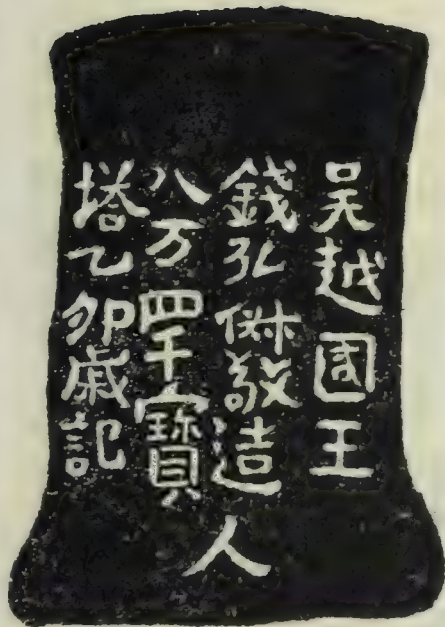 吳越國王
錢弘俶敬造
八万四千寶
塔乙卯歲記
人